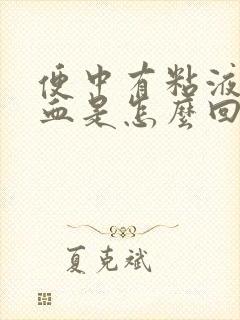 便中有粘液
血是怎麼回
夏克斌